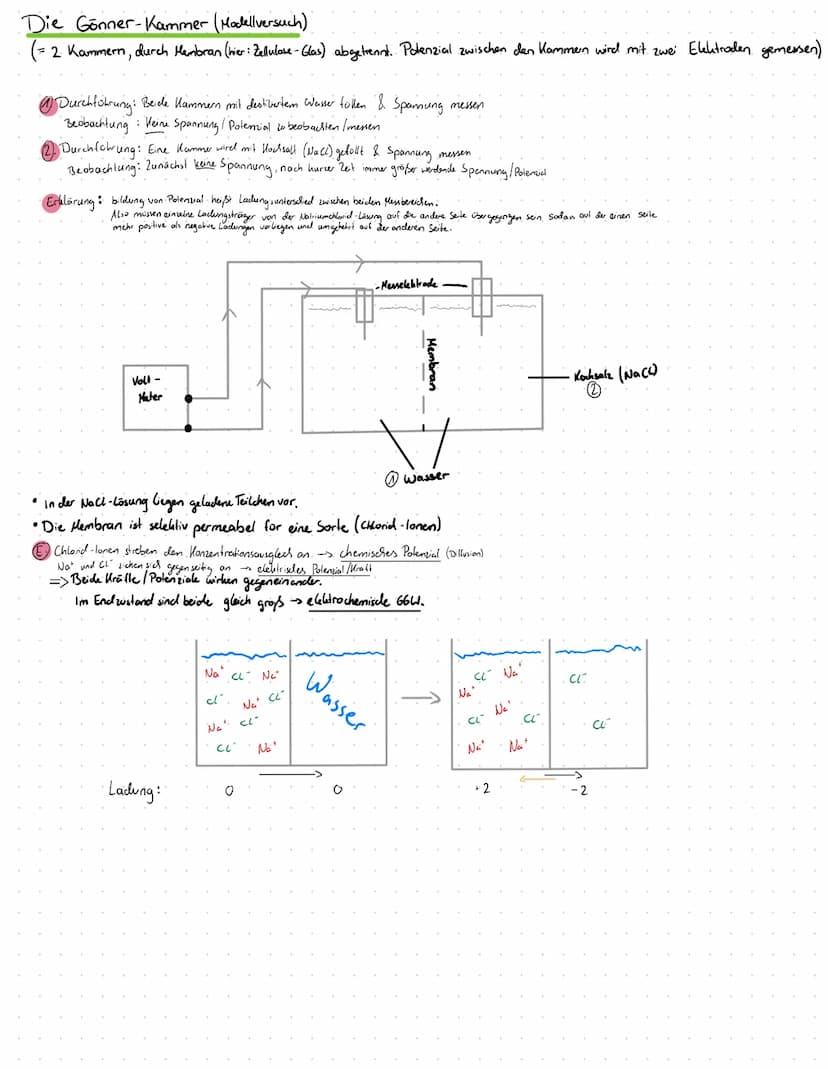 Die Gönner-Kammer (Modellversuch)
(= 2 Kammern, durch Membran (hier: Zellulose-Glas) abgetrennt. Potenzial zwischen den Kammern wird mit zwei Elektroden gemessen)
1) Durchführung: Beide Kammern mit destiliertem Wasser füllen & Spannung messen
Beobachtung: Keine Spannung/Potenzial zu beobachten/messen
2) Durchführung: Eine Kammer wird mit Kochsalz (NaCl) gefüllt & Spannung messen
Beobachtung: Zunächst keine Spannung, nach kurzer Zeit immer größer werdende Spannung/Potenzial
Erklärung: bildung von Potenzial heißt Ladungsunterschied zwischen beiden Messbereichen.
Also müssen einzelne Ladungsträger von der Natriumchlorid-Lösung auf die andere Seite übergegangen sein sodass auf der einen Seite
mehr positive als negative Ladungen vorliegen und umgekehrt auf der anderen Seite.
- Messelektrode
Volt-
Meter
Membran
Kochsalz (NaCl)
2
1 Wasser
• In der NaCl-Lösung liegen geladene Teilchen vor.
• Die Membran ist selektiv permeabel für eine Sorte (Chlorid-Ionen)
E) Chlorid-Ionen streben den Konzentrationsausgleich an → chemisches Potenzial (Diffusion)
Na⁺ und Cl⁻ ziehen sich gegenseitig an → elektrisches Potenzial/Kraft
=> Beide Kräfte/Potenziale wirken gegeneinander.
Im Endzustand sind beide gleich groß → elektrochemische GGW.
Na⁺ Cl⁻ Na⁺
Cl⁻ Na⁺ Cl⁻
Na⁺ Cl⁻
Cl⁻ Na⁺
Wasser
→
Cl⁻ Na⁺
Na⁺
Cl⁻ Na⁺ Cl⁻
Na⁺ Na⁺
Cl⁻
Cl⁻
Ladung: 0 0 +2 -2